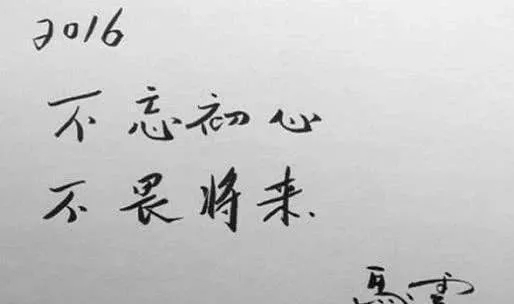 2016
不忘初心
不畏将来.
馬雲